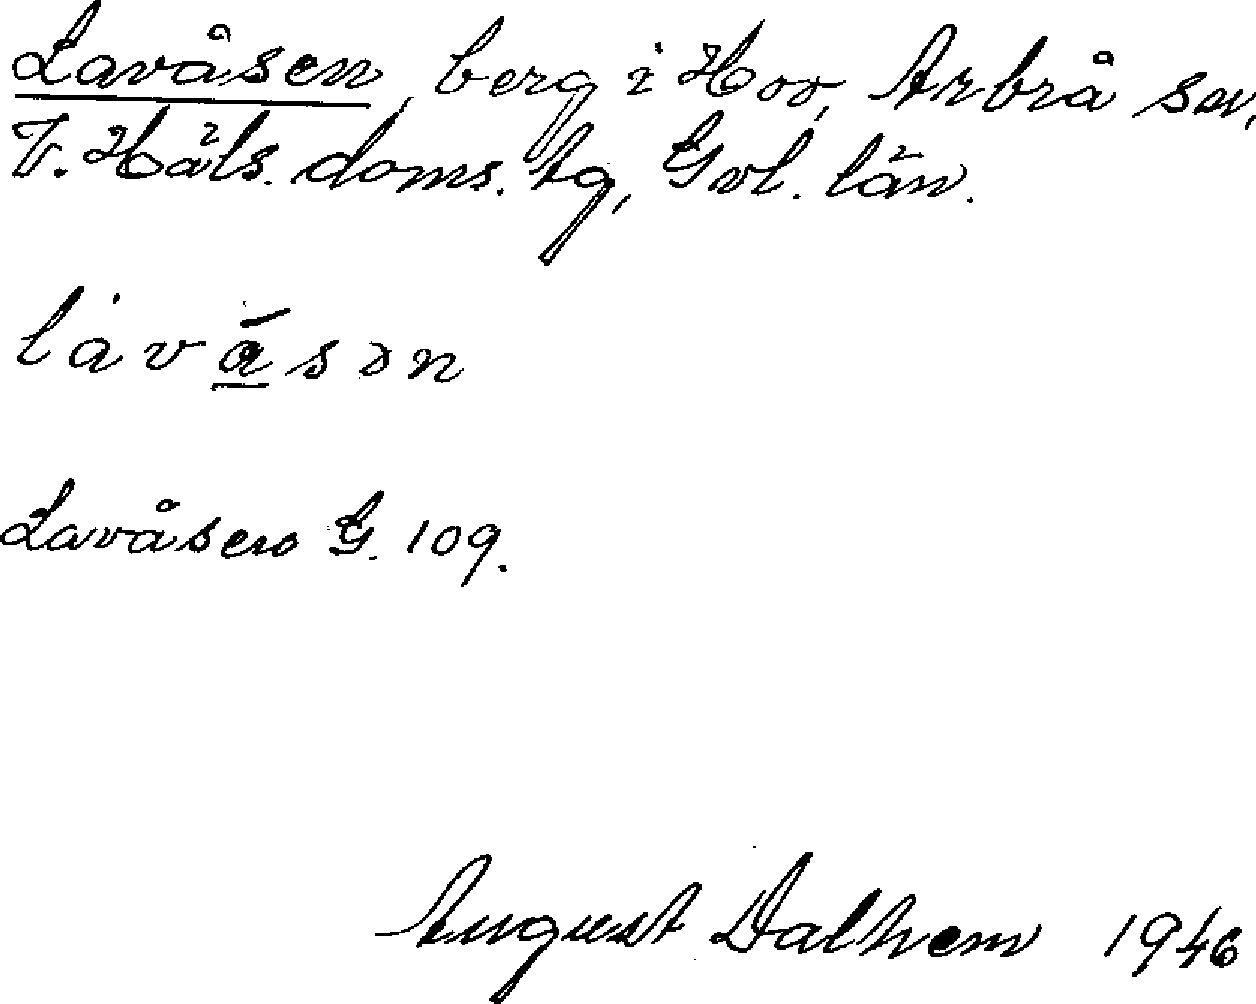 Lavåsen, berg i Hov, Arbrå sn,
V. Häls. doms. tg, Gvl. län.
lavåsən
Lavåsen G. 109.
August Dalhem 1946